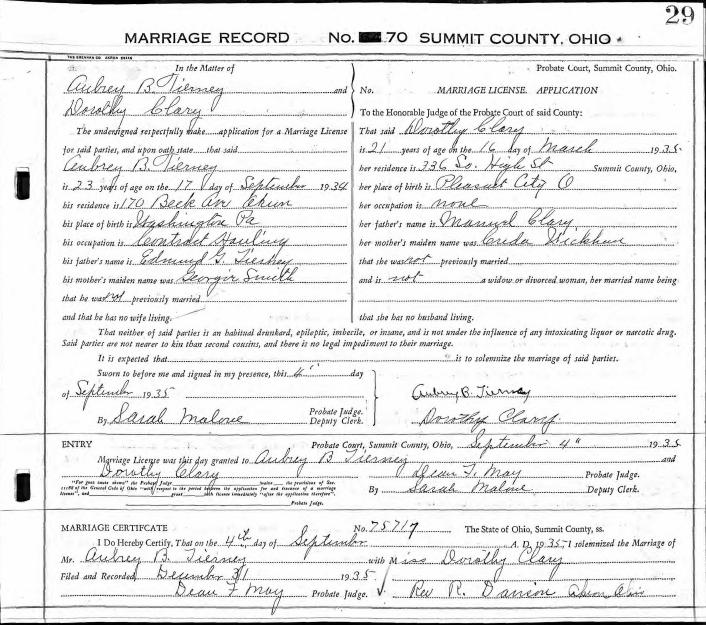 29
MARRIAGE RECORD No. 70 SUMMIT COUNTY, OHIO
In the Matter of
Aubrey B. Tierney and
Dorothy Clary
The undersigned respectfully make application for a Marriage License
for said parties, and upon oath state that said
Aubrey B. Tierney
is 23 years of age on the 17 day of September 1934
his residence is 170 Beck Av Akron
his place of birth is Washington Pa
his occupation is Contract Hauling
his father's name is Edmund G. Tierney
his mother's maiden name was Georgia Smith
that he was not previously married
and that he has no wife living.
Probate Court, Summit County, Ohio.
No. MARRIAGE LICENSE. APPLICATION
To the Honorable Judge of the Probate Court of said County:
That said Dorothy Clary
is 21 years of age on the 16 day of March 1935
her residence is 336 So. High St Summit County, Ohio,
her place of birth is Pleasant City O
her occupation is none
her father's name is Manuel Clary
her mother's maiden name was
that she was not previously married
and is not a widow or divorced woman, her married name being
that she has no husband living.
That neither of said parties is an habitual drunkard, epileptic, imbecile, or insane, and is not under the influence of any intoxicating liquor or narcotic drug.
Said parties are not nearer to kin than second cousins, and there is no legal impediment to their marriage.
It is expected that is to solemnize the marriage of said parties.
Sworn to before me and signed in my presence, this 4" day
of September 1935
Probate Judge.
By Sarah Malone Deputy Clerk.
Aubrey B. Tierney
Dorothy Clary
ENTRY Probate Court, Summit County, Ohio, September 4" 1935
Marriage License was this day granted to Aubrey B Tierney and
Dorothy Clary Dean F. May Probate Judge.
"For good cause shown" the Probate Judge waives the provisions of Sec.
of the General Code of Ohio with respect to the period between the application for and issuance of a marriage
license", and grant such license immediately "after the application therefore".
Probate Judge.
By Sarah Malone Deputy Clerk.
MARRIAGE CERTIFCATE No. 75717 The State of Ohio, Summit County, ss.
I Do Hereby Certify, That on the 4th day of September A. D. 1935 I solemnized the Marriage of
Mr. Aubrey B. Tierney with Miss Dorothy Clary
Filed and Recorded, December 31 1935
Dean F May Probate Judge. Rev R. Akron Ohio